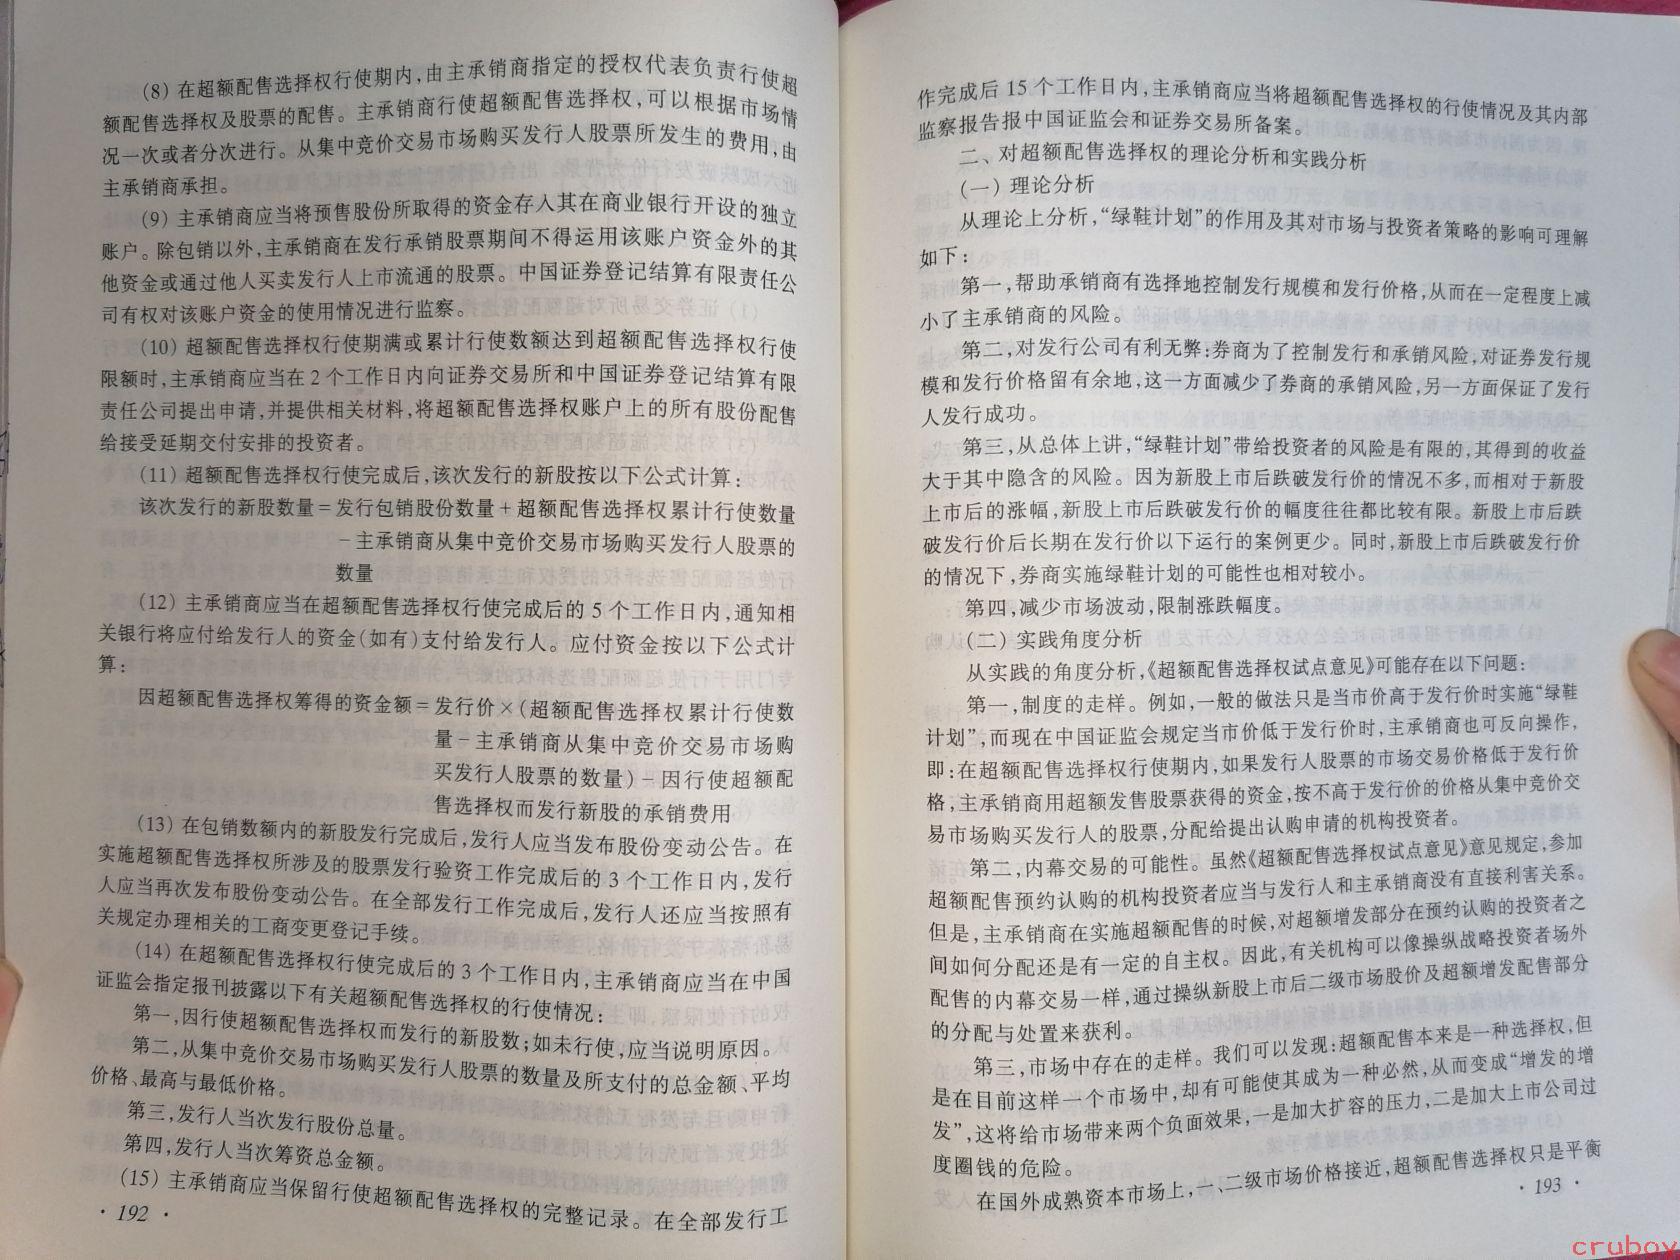 (8) 在超额配售选择权行使期内,由主承销商指定的授权代表负责行使超
额配售选择权及股票的配售。主承销商行使超额配售选择权,可以根据市场情
况一次或者分次进行。从集中竞价交易市场购买发行人股票所发生的费用,由
主承销商承担。
(9) 主承销商应当将预售股份所取得的资金存入其在商业银行开设的独立
账户。除包销以外,主承销商在发行承销股票期间不得运用该账户资金外的其
他资金或通过他人买卖发行人上市流通的股票。中国证券登记结算有限责任公
司有权对该账户资金的使用情况进行监察。
(10) 超额配售选择权行使期满或累计行使数额达到超额配售选择权行使
限额时,主承销商应当在2个工作日内向证券交易所和中国证券登记结算有限
责任公司提出申请,并提供相关材料,将超额配售选择权账户上的所有股份配售
给接受延期交付安排的投资者。
(11) 超额配售选择权行使完成后,该次发行的新股按以下公式计算:
该次发行的新股数量=发行包销股份数量+超额配售选择权累计行使数量
-主承销商从集中竞价交易市场购买发行人股票的
数量
(12) 主承销商应当在超额配售选择权行使完成后的5个工作日内,通知相
关银行将应付给发行人的资金(如有)支付给发行人。应付资金按以下公式计
算:
因超额配售选择权筹得的资金额=发行价×(超额配售选择权累计行使数
量-主承销商从集中竞价交易市场购
买发行人股票的数量)-因行使超额配
售选择权而发行新股的承销费用
(13) 在包销数额内的新股发行完成后,发行人应当发布股份变动公告。在
实施超额配售选择权所涉及的股票发行验资工作完成后的3个工作日内,发行
人应当再次发布股份变动公告。在全部发行工作完成后,发行人还应当按照有
关规定办理相关的工商变更登记手续。
(14) 在超额配售选择权行使完成后的3个工作日内,主承销商应当在中国
证监会指定报刊披露以下有关超额配售选择权的行使情况:
第一,因行使超额配售选择权而发行的新股数;如未行使,应当说明原因。
第二,从集中竞价交易市场购买发行人股票的数量及所支付的总金额、平均
价格、最高与最低价格。
第三,发行人当次发行股份总量。
第四,发行人当次筹资总金额。
(15) 主承销商应当保留行使超额配售选择权的完整记录。在全部发行工
· 192 ·
作完成后15个工作日内,主承销商应当将超额配售选择权的行使情况及其内部
监察报告报中国证监会和证券交易所备案。
二、对超额配售选择权的理论分析和实践分析
(一) 理论分析
从理论上分析,“绿鞋计划”的作用及其对市场与投资者策略的影响可理解
如下:
第一,帮助承销商有选择地控制发行规模和发行价格,从而在一定程度上减
小了主承销商的风险。
第二,对发行公司有利无弊:券商为了控制发行和承销风险,对证券发行规
模和发行价格留有余地,这一方面减少了券商的承销风险,另一方面保证了发行
人发行成功。
第三,从总体上讲,“绿鞋计划”带给投资者的风险是有限的,其得到的收益
大于其中隐含的风险。因为新股上市后跌破发行价的情况不多,而相对于新股
上市后的涨幅,新股上市后跌破发行价的幅度往往都比较有限。新股上市后跌
破发行价后长期在发行价以下运行的案例更少。同时,新股上市后跌破发行价
的情况下,券商实施绿鞋计划的可能性也相对较小。
第四,减少市场波动,限制涨跌幅度。
(二) 实践角度分析
从实践的角度分析,《超额配售选择权试点意见》可能存在以下问题:
第一,制度的走样。例如,一般的做法只是当市价高于发行价时实施“绿鞋
计划”,而现在中国证监会规定当市价低于发行价时,主承销商也可反向操作,
即:在超额配售选择权行使期内,如果发行人股票的市场交易价格低于发行价
格,主承销商用超额发售股票获得的资金,按不高于发行价的价格从集中竞价交
易市场购买发行人的股票,分配给提出认购申请的机构投资者。
第二,内幕交易的可能性。虽然《超额配售选择权试点意见》意见规定,参加
超额配售预约认购的机构投资者应当与发行人和主承销商没有直接利害关系。
但是,主承销商在实施超额配售的时候,对超额增发部分在预约认购的投资者之
间如何分配还是有一定的自主权。因此,有关机构可以像操纵战略投资者场外
配售的内幕交易一样,通过操纵新股上市后二级市场股价及超额增发配售部分
的分配与处置来获利。
第三,市场中存在的走样。我们可以发现:超额配售本来是一种选择权,但
是在目前这样一个市场中,却有可能使其成为一种必然,从而变成“增发的增
发”,这将给市场带来两个负面效果,一是加大扩容的压力,二是加大上市公司过
度圈钱的危险。
在国外成熟资本市场上,一、二级市场价格接近,超额配售选择权只是平衡
· 193 ·
crubox